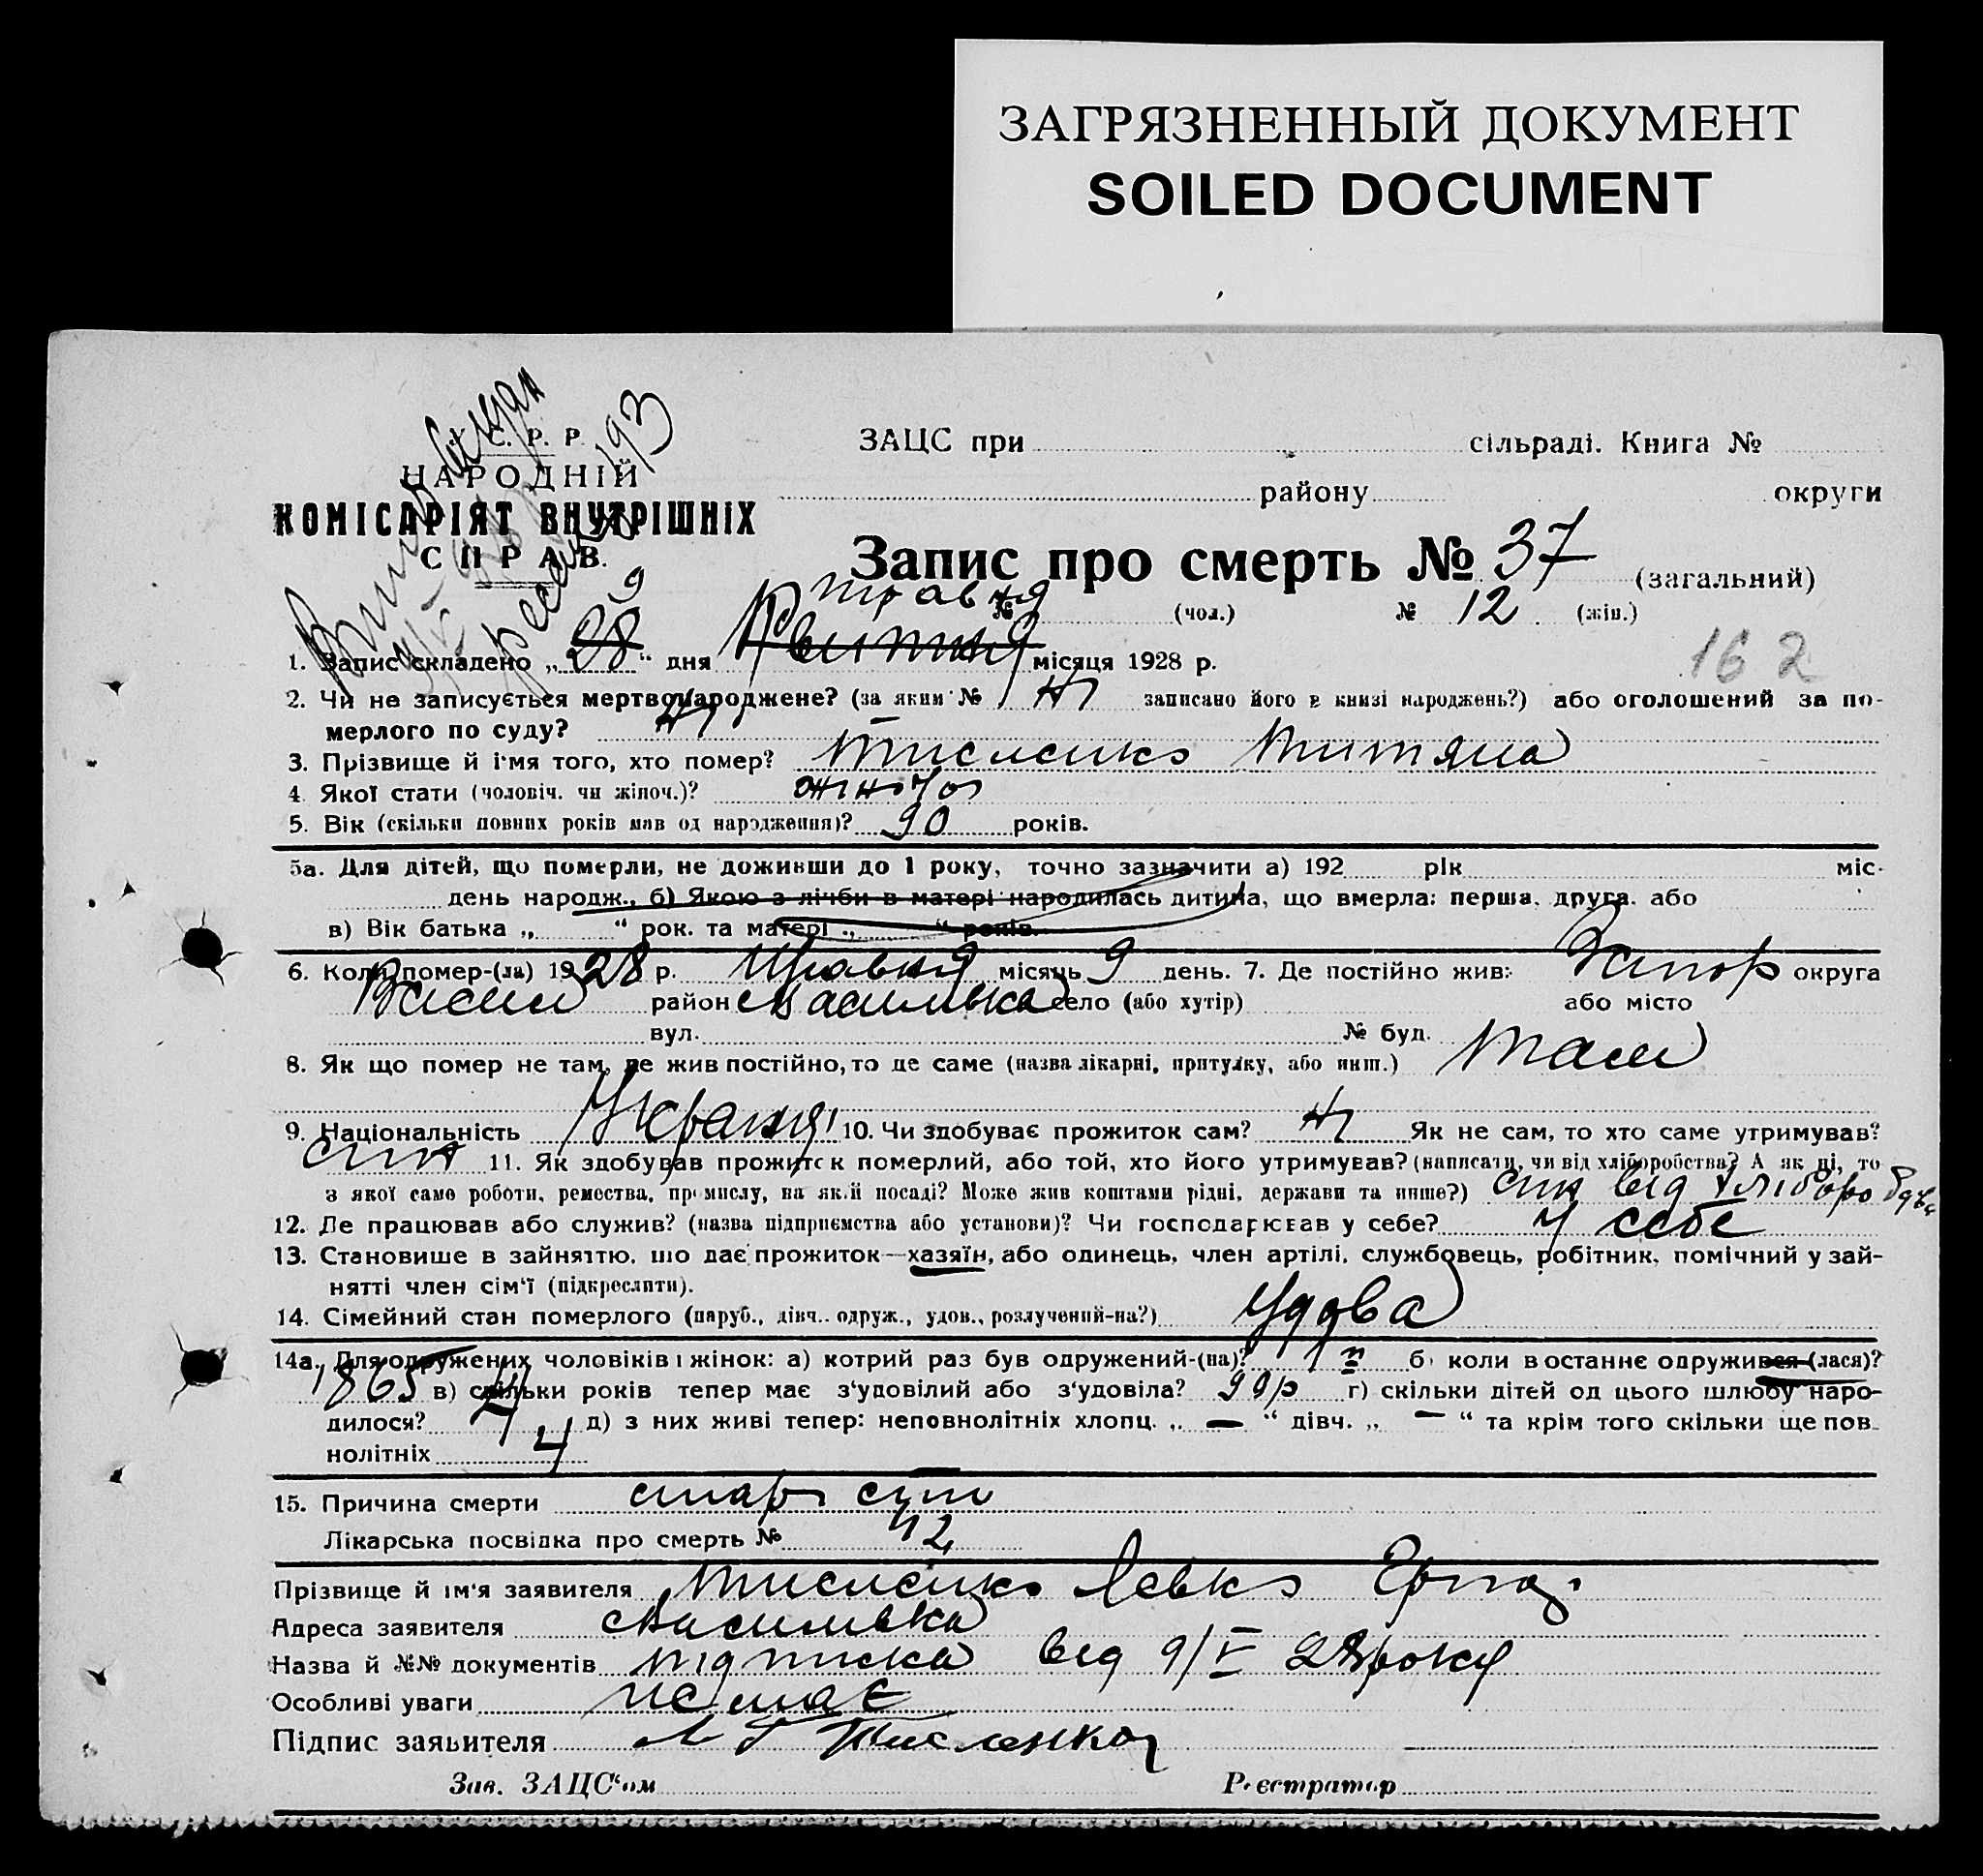 ЗАГРЯЗНЕННЫЙ ДОКУМЕНТ
SOILED DOCUMENT
С. Р. Р.
НАРОДНІЙ
КОМІСАРІЯТ ВНУТРІШНІХ
СПРАВ.
193
ЗАЦС при сільраді. Книга №
району округи
Запис про смерть № 37 (загальний)
травня
№ (чол.) № 12 (жін.)
9
1. Запис складено „ 28 “ дня Квитня місяця 1928 р.
162
2. Чи не записується мертвонароджене? (за яким № Ні записано його в книзі народжень?) або оголошений за по-
мерлого по суду? Ні
3. Прізвище й ім'я того, хто помер? Тисленко Титяна
4. Якої стати (чоловіч. чи жіноч.)? жіночої
5. Вік (скільки повних років мав од народження)? 90 років.
5а. Для дітей, що померли, не доживши до 1 року, точно зазначити а) 192 рік міс.
день народж., б) Якою з лічби в матері народилась дитина, що вмерла: перша, друга, або
в) Вік батька „ “ рок. та матері „ “ років.
6. Коли помер-(ла) 1928 р. Травня місяць 9 день. 7. Де постійно жив: Запор округа
Васил район с Василівка село (або хутір) або місто
вул. № буд.
8. Як що помер не там, де жив постійно, то де саме (назва лікарні, притулку, або инш.) Там
9. Національність Україн 10. Чи здобуває прожиток сам? Ні Як не сам, то хто саме утримував?
син 11. Як здобував прожиток померлий, або той, хто його утримував? (написати, чи від хліборобства? А як ні, то
з якої саме роботи, ремества, промислу, на якій посаді? Може жив коштами рідні, держави та инше?) син від хлібороб
12. Де працював або служив? (назва підприємства або установи)? Чи господарював у себе? У себе
13. Становище в зайняттю, що дає прожиток—хазяїн, або одинець, член артілі, службовець, робітник, помічний у зай-
нятті член сім‘ї (підкреслити).
14. Сімейний стан померлого (паруб., дівч.. одруж., удов., розлучений-на?) Удова
14а. Для одружених чоловіків і жінок: а) котрий раз був одружений-(на)? 1й б) коли в останнє одружився-(лася)?
1865 в) скільки років тепер має з‘удовілий або з‘удовіла? 90р г) скільки дітей од цього шлюбу наро-
дилося? 4 д) з них живі тепер: неповнолітніх хлопц. „ — “ дівч. „ — “ та крім того скільки ще пов-
нолітніх 4
15. Причина смерти
Лікарська посвідка про смерть № 42
Прізвище й ім‘я заявителя Тисленко Левко
Адреса заявителя с Василівка
Назва й №№ документів підписка від 9/V 28 року
Особливі уваги немає
Підпис заявителя Л Г Тисленко
Зав. ЗАЦС‘ом Реєстратор